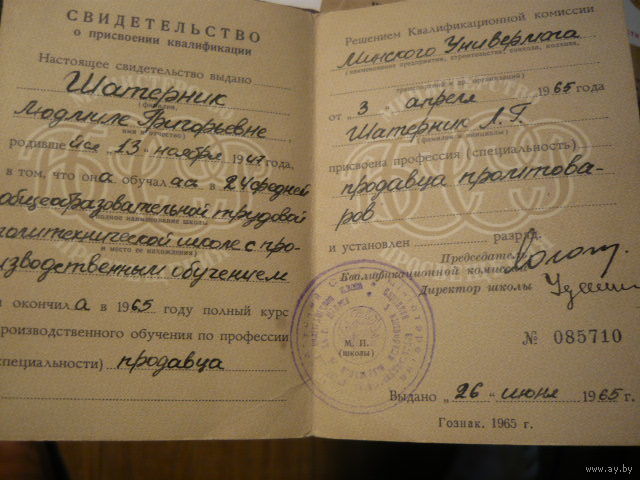 СВИДЕТЕЛЬСТВО
о присвоении квалификации
Настоящее свидетельство выдано
Шатерник
(фамилия,
Людмиле Григорьевне,
имя и отчество)
родившейся „13" ноября 1947 года,
в том, что она обучалась в 24 средней
общеобразовательной трудовой
(полное наименование школы
политехнической школе с про-
и место ее нахождения)
изводственным обучением
и окончила в 1965 году полный курс
производственного обучения по профессии
(специальности) продавца
Решением Квалификационной комиссии
Минского Универмага
(наименование предприятия, строительства, совхоза, колхоза,
транспортной и др. организации)
от „3" апреля 1965 года
Шатерник Л.Г.
(фамилия и инициалы)
присвоена профессия (специальность)
продавца промтова-
ров
и установлен разряд.
Председатель
Квалификационной комиссии
Директор школы
М. П.
(школы)
№ 085710
Выдано „26" июня 1965 г.
Гознак. 1965 г.
www.ay.by